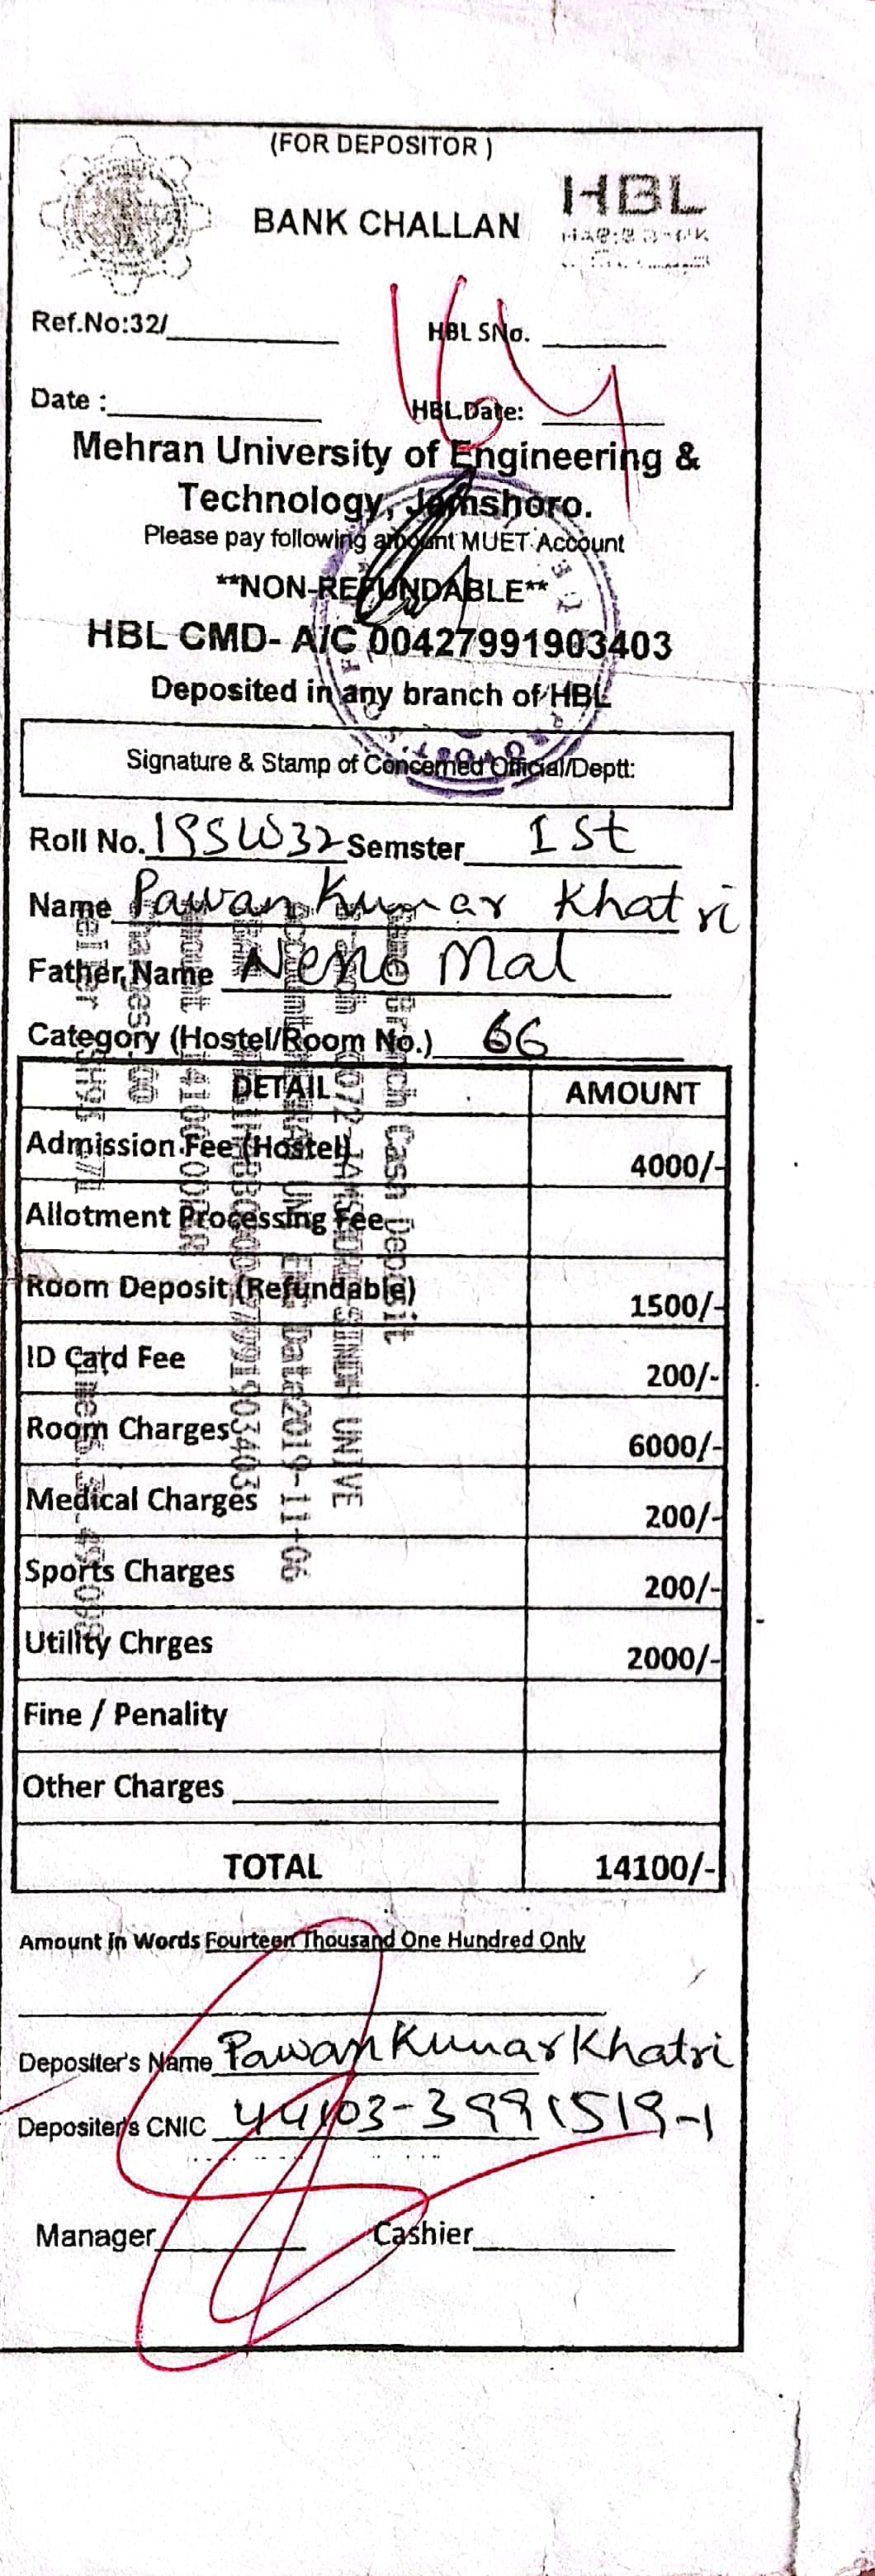 (FOR DEPOSITOR )
BANK CHALLAN
HBL
Ref.No:32/
HBL SNo.
Date :
HBL.Date:
Mehran University of Engineering &
Technology, Jamshoro.
Please pay following amount MUET Account
**NON-REFUNDABLE**
HBL CMD- A/C 00427991903403
Deposited in any branch of HBL
Signature & Stamp of Concerned Official/Deptt:
Roll No. 19SW32 Semster 1st
Name Pawan Kumar Khatri
Father,Name Neno Mal
Category (Hostel/Room No.) 66
DETAIL AMOUNT
Admission Fee (Hostel) 4000/-
Allotment Processing Fee
Room Deposit (Refundable) 1500/-
ID Card Fee 200/-
Room Charges 6000/-
Medical Charges 200/-
Sports Charges 200/-
Utility Chrges 2000/-
Fine / Penality
Other Charges
TOTAL 14100/-
Amount in Words Fourteen Thousand One Hundred Only
Depositer's Name Pawan Kumar Khatri
Depositer's CNIC 44103-3991519-1
Manager Cashier
Cash Deposit
JAMSHORO SINDH UNIVE
Date2019-11-06